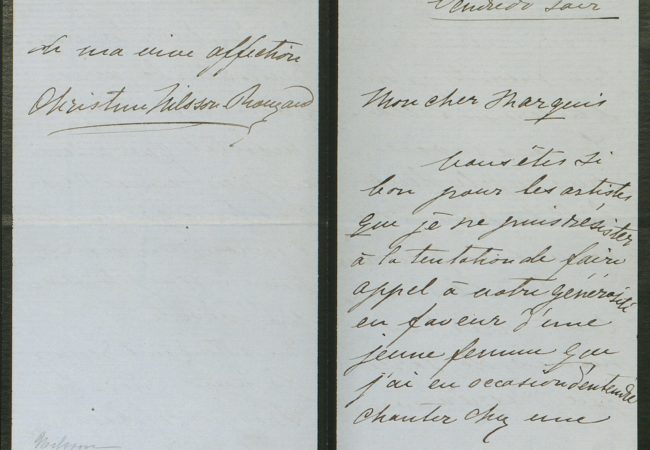 de ma vive affection
Christine Nilsson Rouzaud
Nilsson
Vendredi soir
Mon cher Marquis
Vous êtes si
bon pour les artistes
que je ne puis résister
à la tentation de faire
appel à votre générosité
en faveur d'une
jeune femme que
j'ai eu occasion d'entendre
chanter chez une